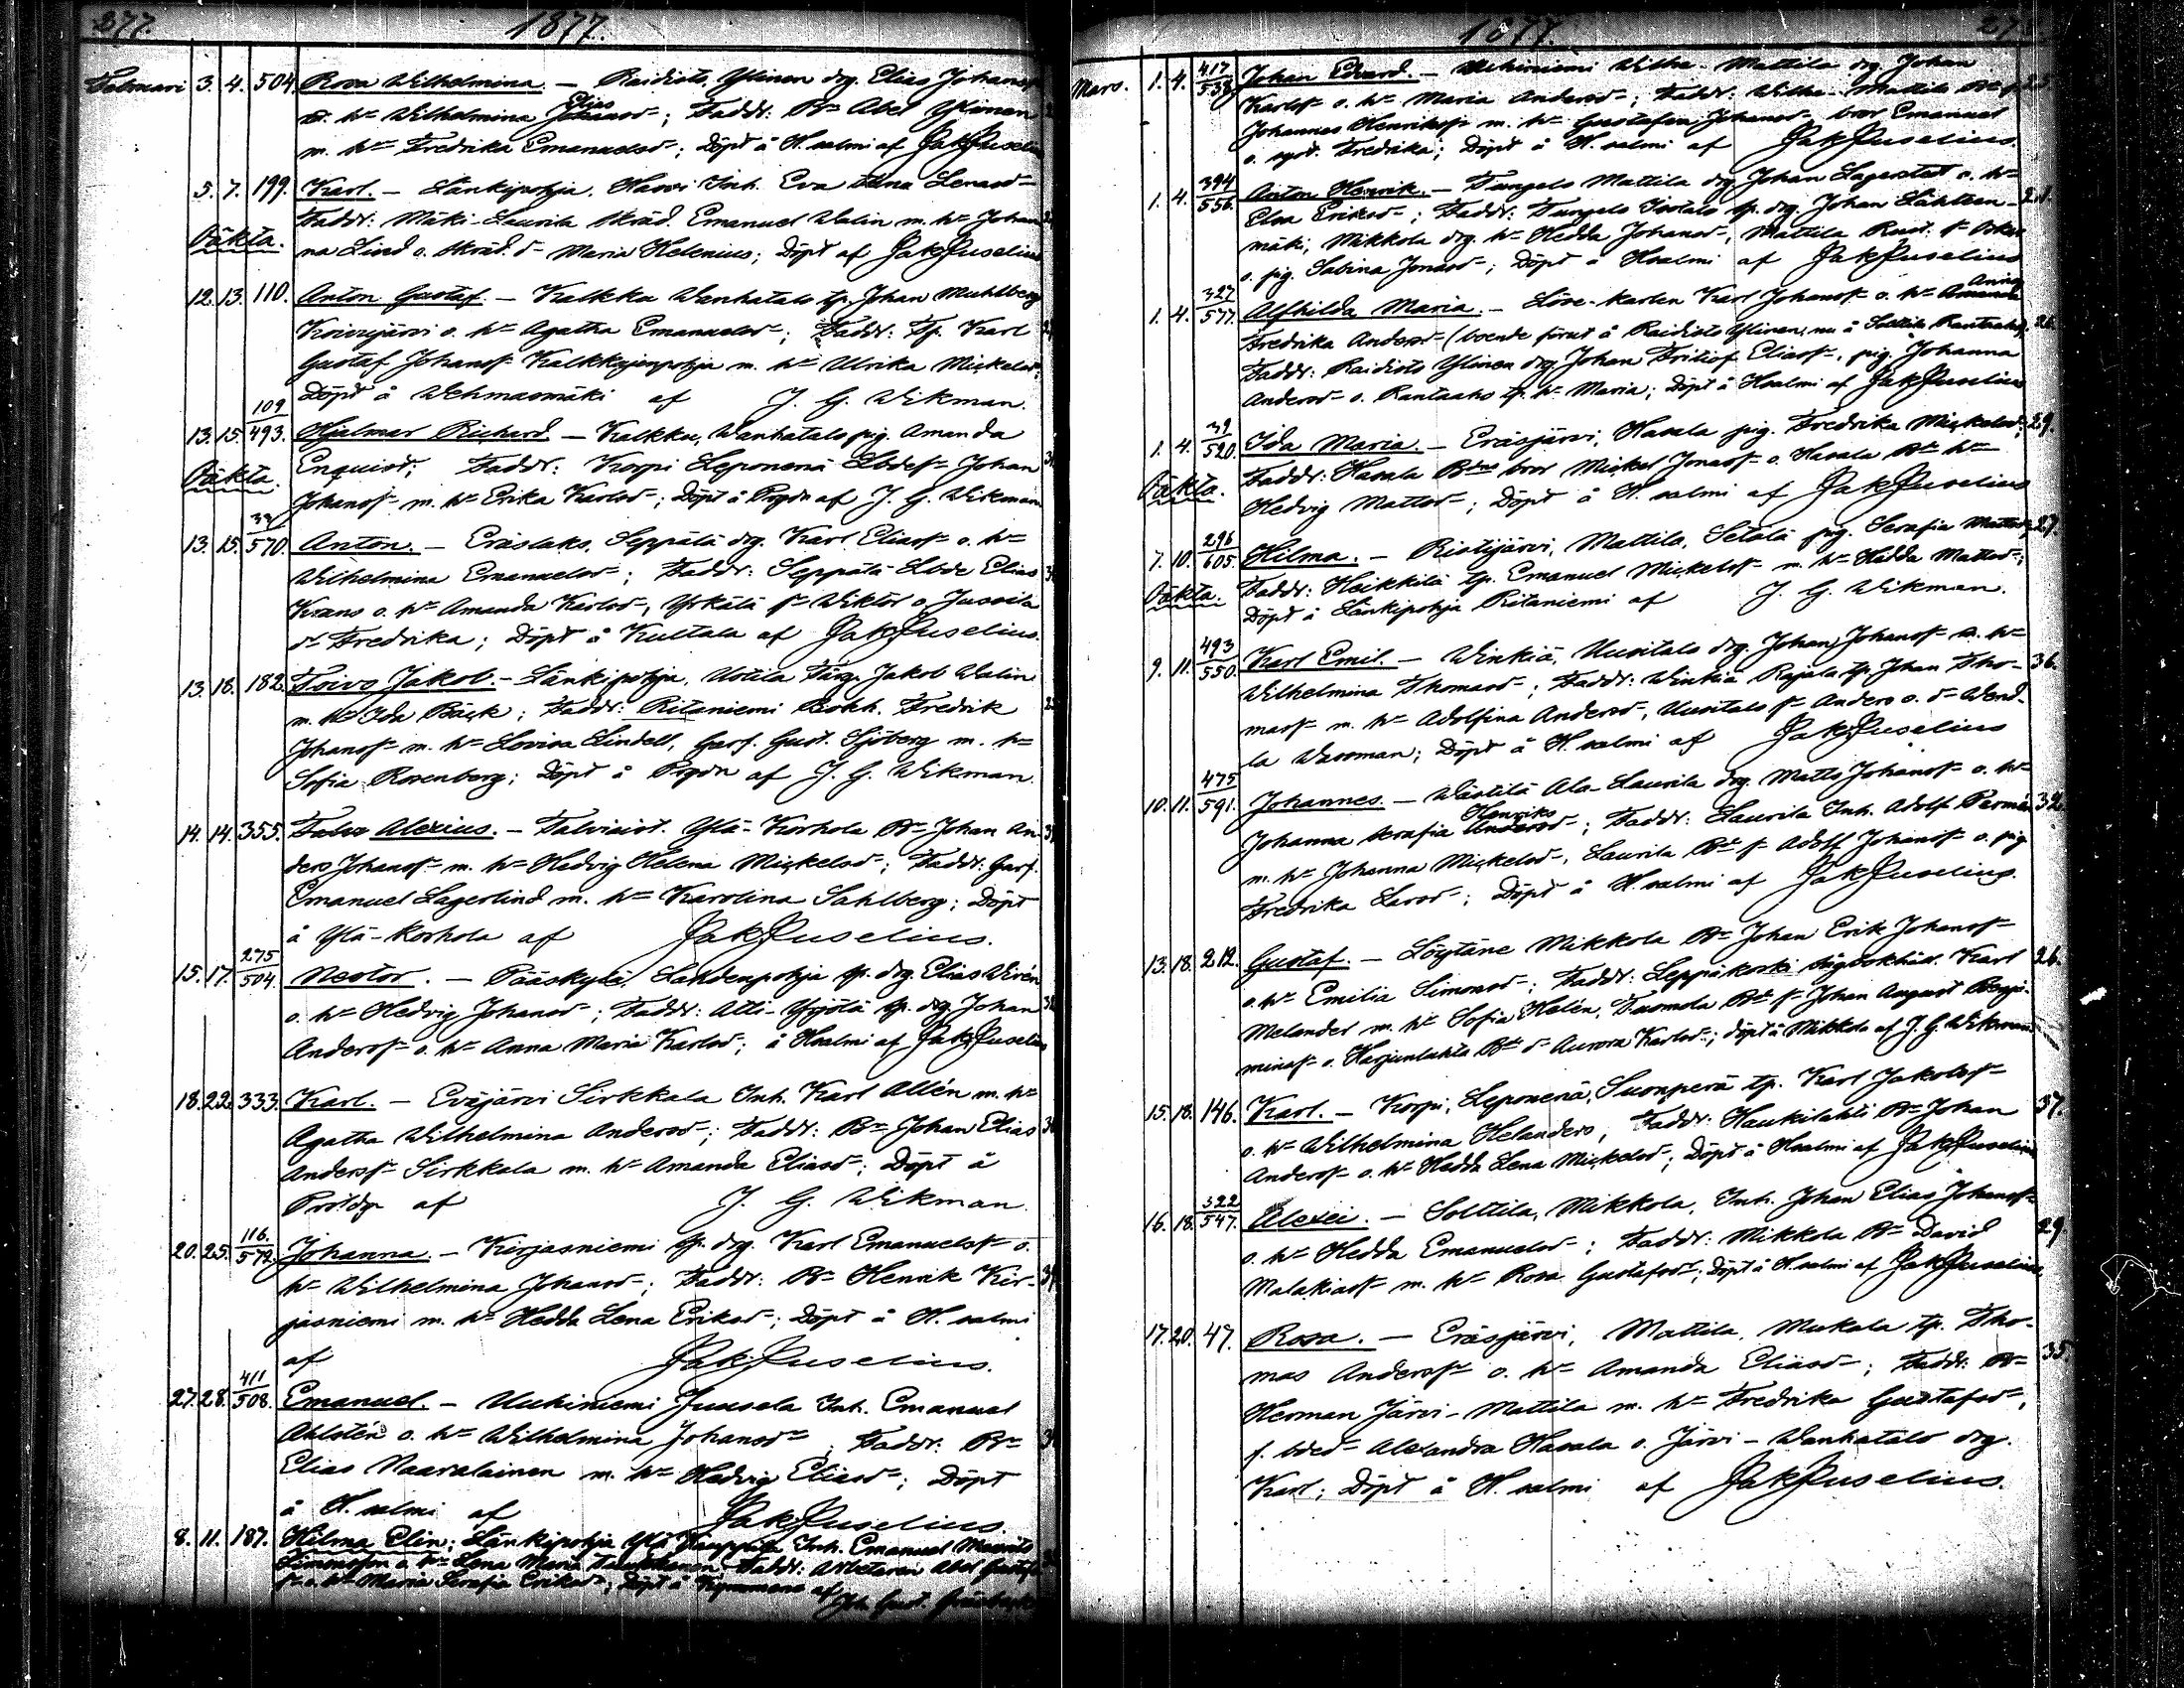 277.
1877.
Februari 3. 4. 504. Rosa Wilhelmina. — Raidisto, Ylinen drg. Elias Johans
o. h– Wilhelmina Elias d–; Faddr: B– Abel Ylinen
m. h– Fredrika Emanuelsd–; Döpt å H. salmi af Jak Juselius
5. 7. 199. Karl. — Länkipohja. Hassi Inh. Eva Stina Lenasd–
Oäkta. Faddr: Mäki-Laurila skräd. Emanuel Walin m. h– Johan
na Lind o. skräd. d– Maria Helenius; Döpt af Jak Juselius
12. 13. 110. Anton Gustaf. — Kalkku Wanhatalo tp. Johan Muhlberg
Koivujärvi o. h– Agatha Emanuelsd–; Faddr: Tp. Karl
Gustaf Johansf– Kalkkujenpohja m. h– Ulrika Mickelsd–;
Döpt å Wehmasmäki af J. G. Wikman.
13. 15. 109/493. Hjalmar Richard. — Kalkku, Wanhatalo pig. Amanda
Oäkta. Enquist; Faddr: Korpi Leponenä Lbdes– Johan
Johansf– m. h– Erika Karlsd–; Döpt å Prgdn af J. G. Wikman
13. 15. 33/570. Anton. — Eräslaks, Seppälä drg. Karl Eliasf– o. h–
Wilhelmina Emanuelsd–; Faddr: Seppälä Lbde Elias
Krans o. h– Amanda Karlsd–, Yrkälä s– Wiktor o. Jussila
d– Fredrika; Döpt å Kultala af Jak Juselius.
13. 18. 182. Toivo Jakob. — Länkipohja, Ustila Färg. Jakob Walin
m. h– Ida Bäck; Faddr: Ritaniemi Bokh. Fredrik
Johansf– m. h– Lovisa Lindell, Garf. Gust. Sjöberg m. h–
Sofia Rosenberg; Döpt å Prgdn af J. G. Wikman.
14. 14. 355. Felix Alexius. — Talviaist. Ylä-Korhola B– Johan An
ders Johansf– m. h– Hedvig Helena Mickelsd–; Faddr: Garf.
Emanuel Lagerlind m. h– Karolina Sahlberg; Döpt
å Ylä-Korhola af Jak Juselius.
15. 17. 275/504. Nestor. — Pääskylä, Lahdenpohja tp. drg. Elias Wirén
o. h– Hedvig Johansd–; Faddr: Alli-Yrjölä tp. drg. Johan
Andersf– o. h– Anna Maria Karlsd–; å Hsalmi af Jak Juselius
18. 22. 333. Karl. — Eväjärvi Sirkkala Inh. Karl Allén m. h–
Agatha Wilhelmina Andersd–; Faddr: B– Johan Elias
Andersf– Sirkkala m. h– Amanda Eliasd–; Döpt å
Prstdgn af J. G. Wikman.
20. 25. 116./572. Johanna. — Kirjasniemi tp. drg. Karl Emanuelsf– o.
h– Wilhelmina Johansd–; Faddr: B– Henrik Kir-
jasniemi m. h– Hedda Lena Eriksd–; Döpt å H. salmi
af Jak Juselius.
27. 28. 411/508. Emanuel. — Uuhiniemi Juusela Inh. Emanuel
Ahlstén o. h– Wilhelmina Johansd–; Faddr: B–
Elias Naaralainen m. h– Hedvig Eliasd–; Döpt
å H. salmi af Jak Juselius.
8. 11. 187. Hilma Elin; Länkipohja Ylä Kauppila Inh. Emanuel Maurits
Simonsson o. h– Lena Maria; Faddr: Arbetaren Abel Gustafs
s– o. h– Maria Serafia Eriksd–; Döpt å af
Joh. Gust.
1877.
Mars. 1. 4. 417/538. Johan Edvard. — Uuhiniemi Wilha-Mattila drg. Johan
Karlsf– o. h– Maria Andersd–; Faddr: Wilha-Mattila B– s– 25.
Johannes Henriksf– m. h– Gustafva Johansd–, bror Emanuel
o. syst. Fredrika; Döpt å H. salmi af Jak Juselius.
1. 4. 394/556. Anton Henrik. — Fungelo Mattila drg. Johan Lagerstet o. h–
Elsa Eriksd–; Faddr: Fungelo Isotalo tp. drg. Johan Lähteen- 21.
mäki, Mikkola drg. h– Hedda Johansd–, Mattila Rust. s– Oskar
o. pig. Sabina Jonasd–; Döpt å Hsalmi af Jak Juselius
1. 4. 327/577. Alfhilda Maria. — Löse-karlen Karl Johansf– o. h– Anna
Fredrika Andersd– (boende förut å Raidisto Ylinen, nu å Solttila Rantaaho); 26.
Faddr: Raidisto Ylinen drg. Johan Fritiof Eliasf–, pig. Johanna
Andersd– o. Rantaaho tp. h– Maria; Döpt å Hsalmi af Jak Juselius
1. 4. 39/520. Ida Maria. — Eräsjärvi, Hasala pig. Fredrika Mickelsd–; 29.
Oäkta. Faddr: Hasala Bdns bror Mickel Jonasf– o. Hasala B– h–
Hedvig Mattsd–; Döpt å H. salmi af Jak Juselius
7. 10. 296/605. Hilma. — Ristijärvi, Mattila, Setälä pig. Serafia Mattsd–; 27.
Oäkta. Faddr: Heikkilä tp. Emanuel Mickelsf– m. h– Hedda Mattsd–;
Döpt å Länkipohja Ritaniemi af J. G. Wikman.
9. 11. 493/550. Karl Emil. — Winkiä, Uusitalo drg. Johan Johansf– o. h–
Wilhelmina Thomasd–; Faddr: Winkiä Rajala tp. Johan Tho- 36.
masf– m. h– Adolfina Andersd–, Uusitalo s– Anders o. d– Wend-
la Wassman; Döpt å H. salmi af Jak Juselius
10. 11. 475/591. Johannes. — Västilä Ala-Laurila drg. Matts Johansf– o. h–
Johanna Serafia Henriks d–; Faddr: Laurila Inh. Adolf Permén 32.
m. h– Johanna Mickelsd–, Laurila B– s– Adolf Johansf– o. pig.
Fredrika Larsd–; Döpt å H. salmi af Jak Juselius.
13. 18. 212. Gustaf. — Löytäne Mikkola B– Johan Erik Johansf–
o. h– Emilia Simonsd–; Faddr: Leppäkoski sågbokhåll. Karl 26.
Melander m. h– Sofia Helén, Tuomola B– s– Johan August Benja-
minsf– o. Harjunlahti B– d– Aurora Karlsd–; döpt å Mikkola af J. G. Wikman
15. 18. 146. Karl. — Korpi, Leponenä, Suonperä tp. Karl Jakobsf–
o. h– Wilhelmina Helanders; Faddr: Haukilahti B– Johan 37.
Andersf– o. h– Hedda Lena Mickelsd–; Döpt å Hsalmi af Jak Juselius
16. 18. 322/547. Alexei. — Solttila, Mikkola, Inh. Johan Elias Johansf–
o. h– Hedda Emanuelsd–; Faddr: Mikkola B– David 29.
Malakiasf– m. h– Rosa Gustafsd–; Döpt å H. salmi af Jak Juselius.
17. 20. 47. Rosa. — Eräsjärvi, Mattila, Mukala tp. Tho-
mas Andersf– o. h– Amanda Eliasd–; Faddr: B– 35.
Herman Järvi-Mattila m. h– Fredrika Gustafsd–,
f. bded– Alexandra Hasala o. Järvi-Wanhatalo drg.
Karl; Döpt å H. salmi af Jak Juselius.